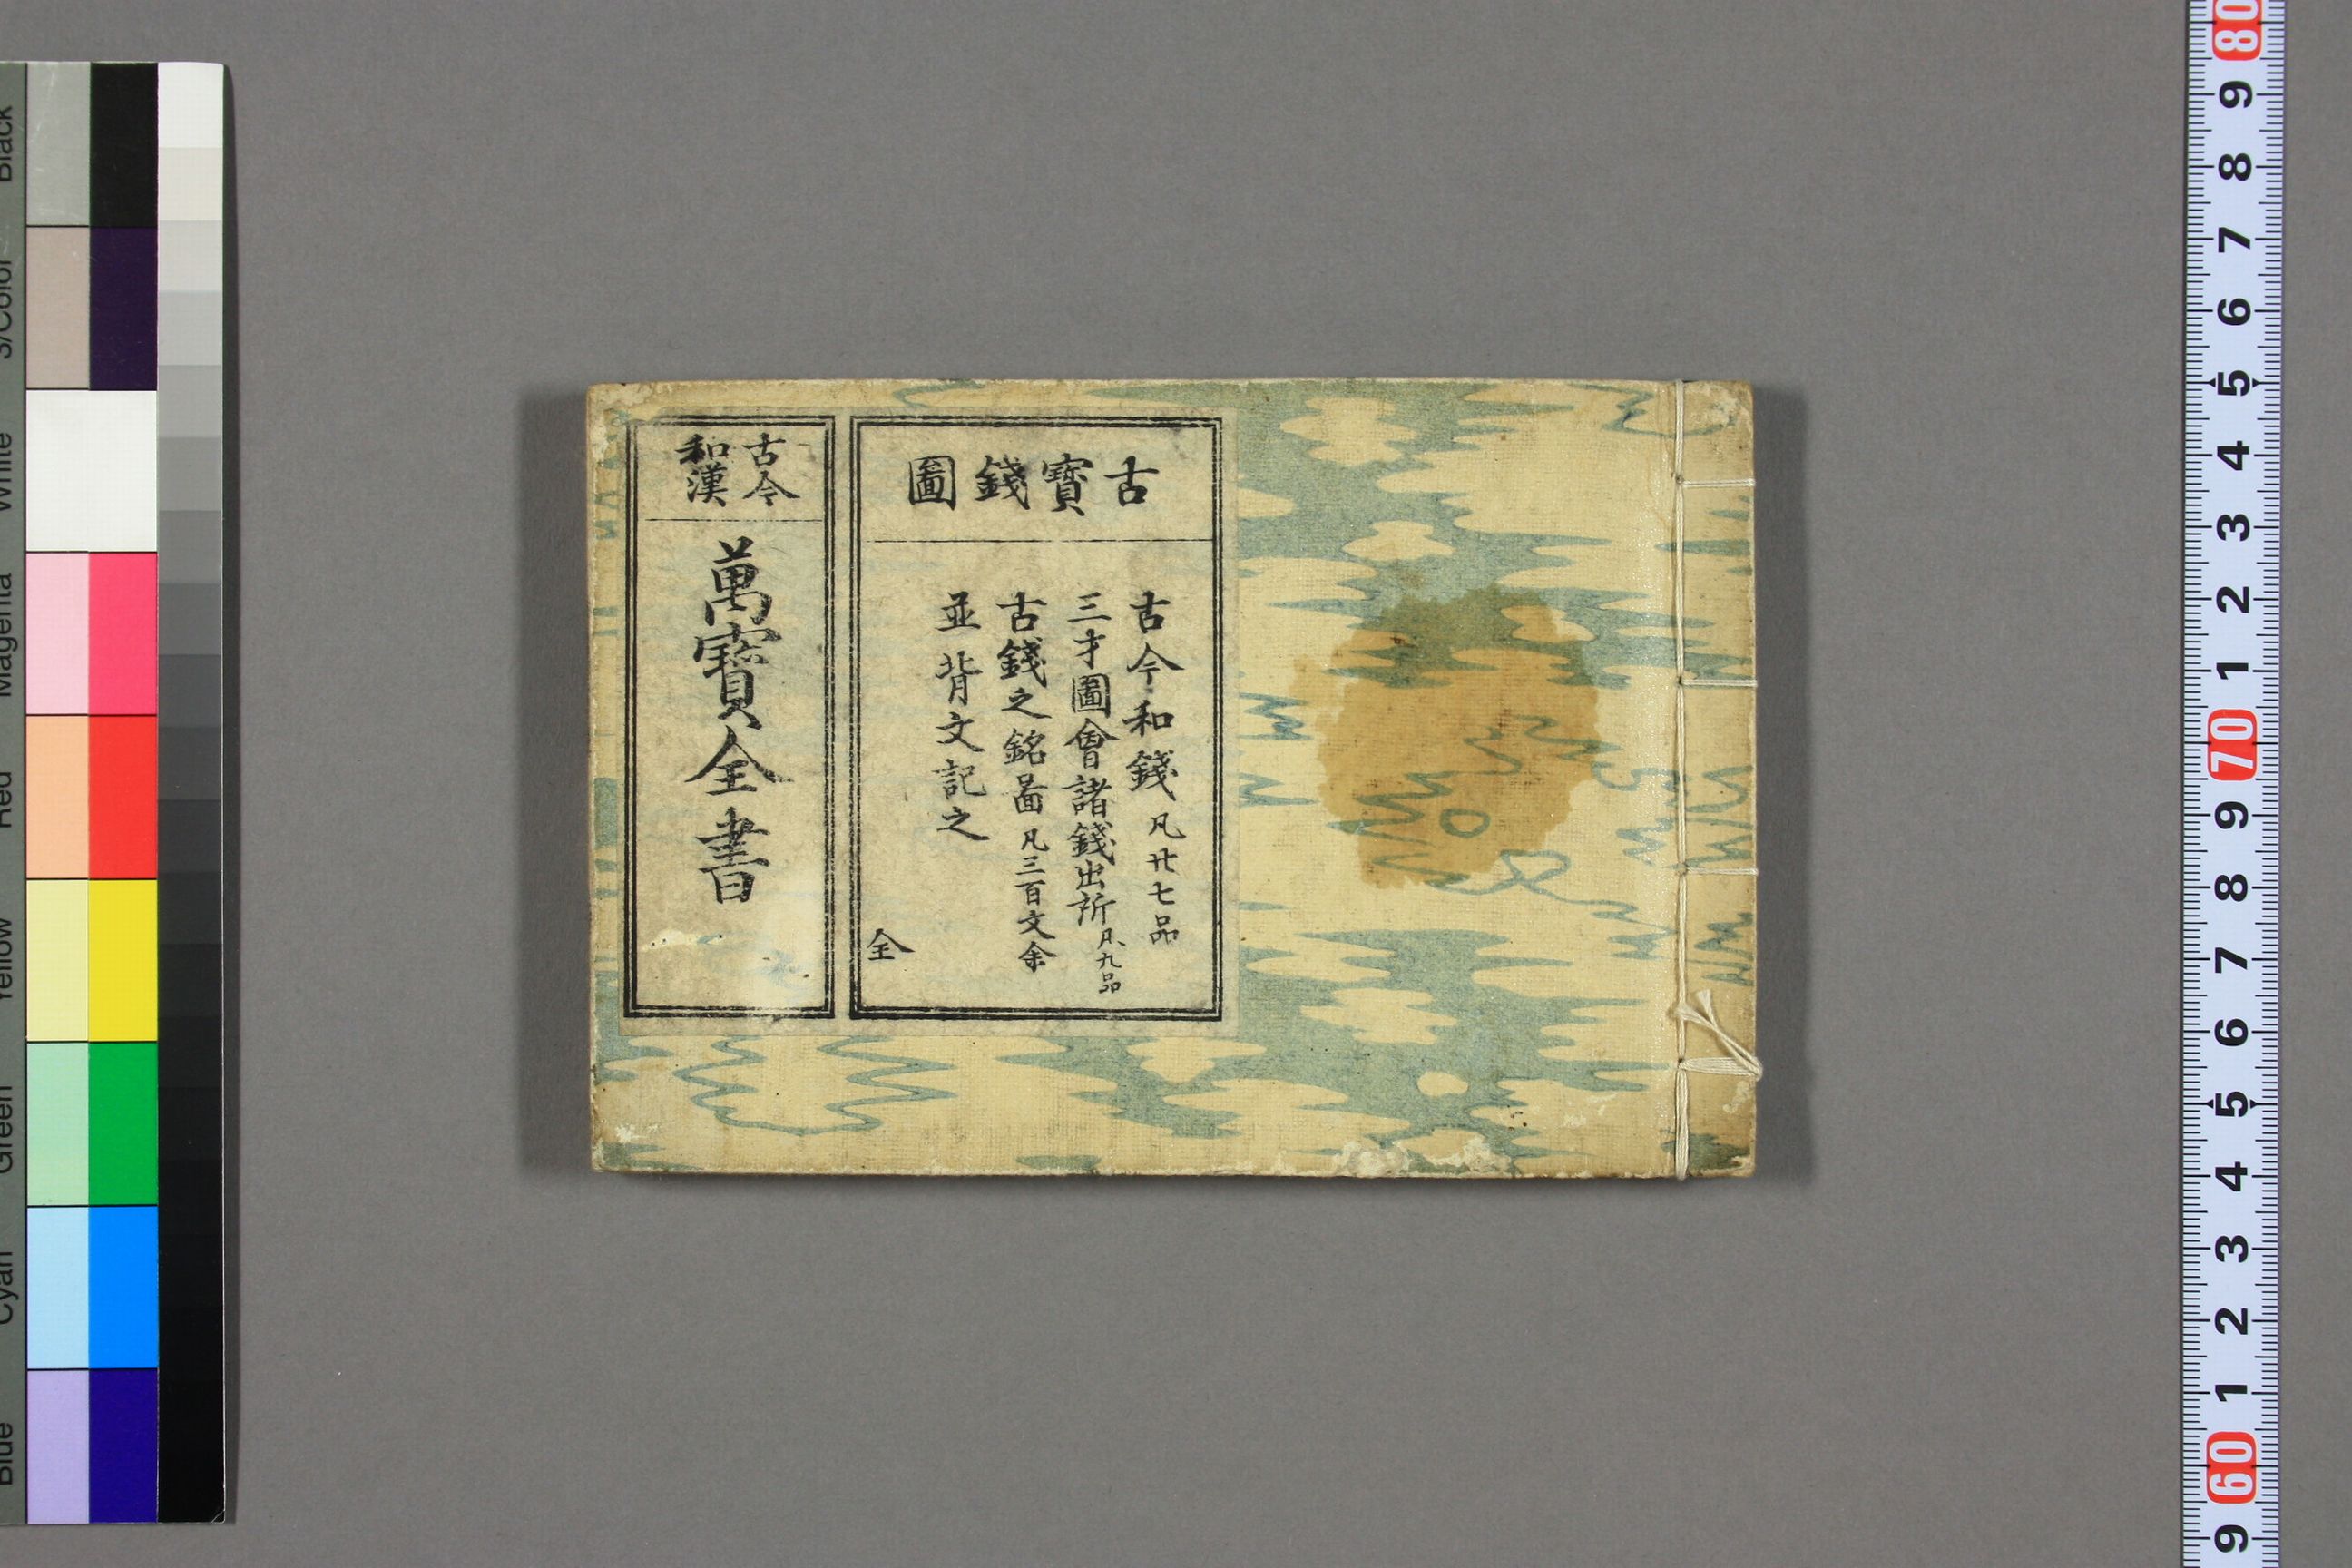 古寶錢圖
古今和錢凡廿七品
三才圖會諸錢出所凡九品
古錢之銘啚凡三百文余
並背文記之
全
古今
和漢
萬寶全書
Black
3/Color
White
Magenta
Red
Yellow
Green
Cyan
Blue
80
9
8
7
6
5
4
3
2
1
70
9
8
7
6
5
4
3
2
1
60
9